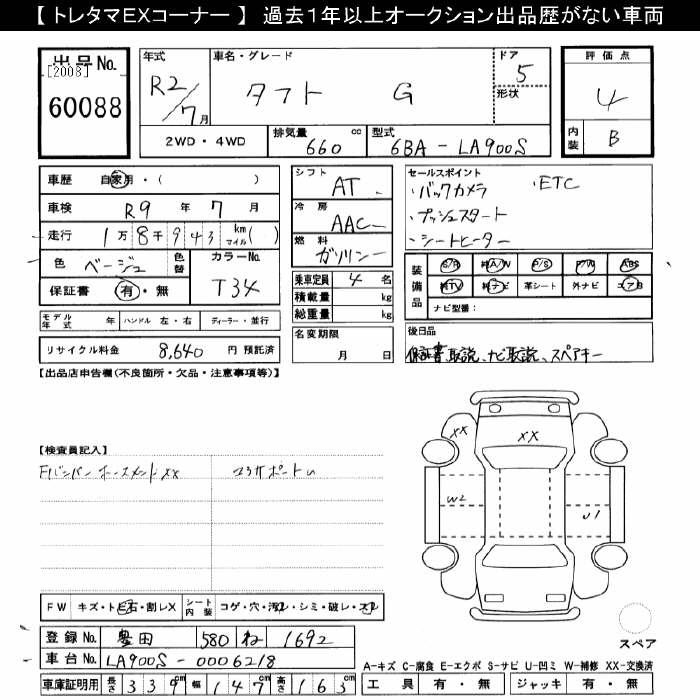 【 トレタマEXコーナー 】 過去1年以上オークション出品歴がない車両
出品No.
[2008]
60088
年式
R2/7月
車名・グレード
タフト G
ドア
5
形状
評価点
4
内装
B
2WD・4WD
排気量 660 cc
型式 6BA-LA900S
車歴 自家用・( )
車検 R9 年 7 月
走行 1万8千943 km マイル( )
色 ベージュ
色替
カラーNo. T34
保証書 有・無
モデル年式 年
ハンドル 左・右
ディーラー・並行
リサイクル料金 8,640 円 預託済
シフト AT
冷房 AAC
燃料 ガソリン
乗車定員 4 名
積載量 kg
総重量 kg
名変期限
月 日
セールスポイント
・バックカメラ ・ETC
・プッシュスタート
・シートヒーター
装備品
S/R 純A/W P/S P/W ABS
純TV 純ナビ 革シート 外ナビ エアB
ナビ型番:
後日品
保証書、取説、ナビ取説、スペアキー
【出品店申告欄(不良箇所・欠品・注意事項等)】
【検査員記入】
Frバンパー ホースメント XX
コアサポートu
XX
XX
W2
U1
スペア
FW キズ・ト石・割レX
シート内装 コゲ・穴・汚レ・シミ・破レ・スレ
登録No. 豊田 580 ね 1692
車台No. LA900S-0006218
車庫証明用 長さ 339cm 幅 147cm 高さ 163cm
A-キズ C-腐食 E-エクボ S-サビ U-凹ミ W-補修 XX-交換済
工具 有・無 ジャッキ 有・無